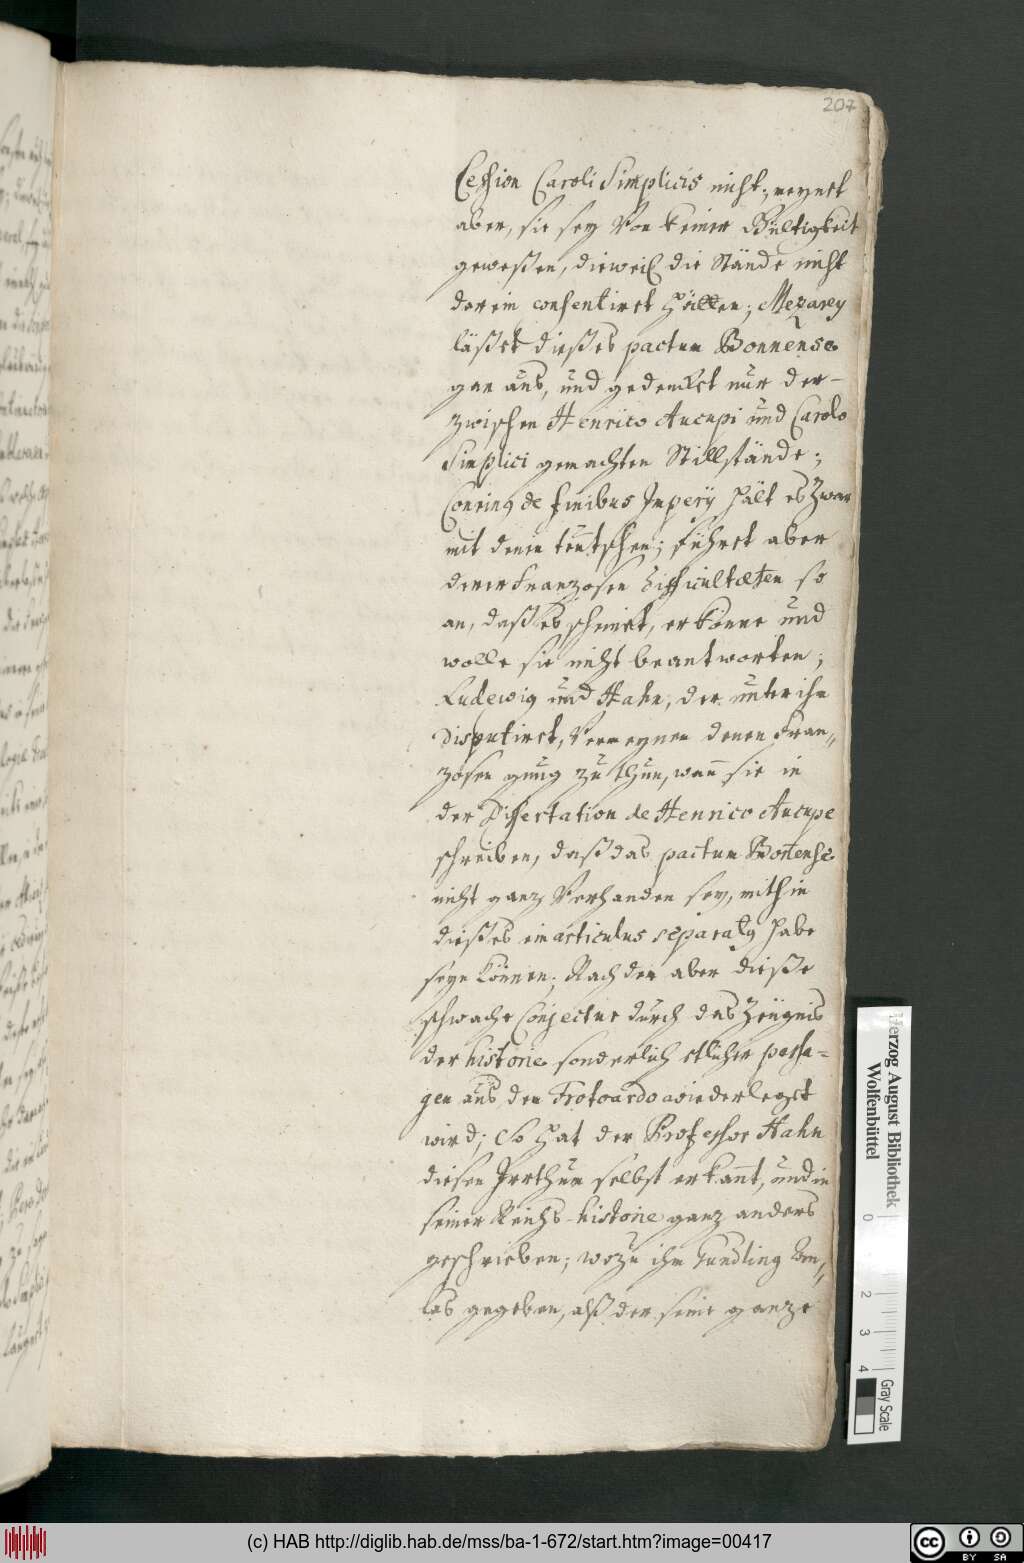 207
Cession Caroli Simplicis nicht; meynet
aber, sie sey von keiner Gültigkeit
geweßen, dieweil die Stände nicht
darein consentiret hätten; Mezarey
läßet dießes pactum Bonnense
gar aus, und gedencket nur der
zwischen Henrico Aucupi und Carolo
Simplici gemachten Stillstände;
Conring de finibus Imperÿ hält es zwar
mit denen teutschen; führet aber
derer Franzosen Difficultæten so
an, daß es scheinet, er könne und
wolle sie nicht beantworten;
Ludewig und Hahn, der unter ihm
disputiret, vermeynen denen Fran„
zosen gnug zu thun, wann sie in
der Dissertation de Henrico Aucupe
schreiben, daß das pactum Bonnense
nicht ganz verhanden sey, mithin
dießes ein articulus separatus habe
seyn können; Nachdem aber dieße
schwache Conjectur durch das Zeugnis
der historie sonderlich etlicher passa=
gen aus dem Frodoardo wiederleget
wird; So hat der Professor Hahn
diesen Irrthum selbst erkannt, und in
seiner Reichs-historie ganz anders
geschrieben; wozu ihm Gundling An„
las gegeben, alß der seine ganze
Herzog August Bibliothek
Wolfenbüttel
0
2
3
4
Gray Scale
(c) HAB http://diglib.hab.de/mss/ba-1-672/start.htm?image=00417
CC BY SA